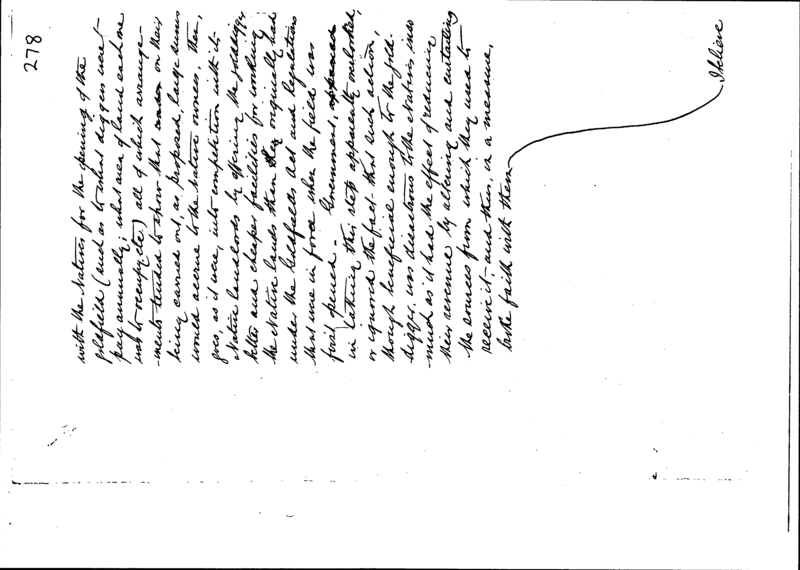 278
with the Natives for the opening of the
goldfield (such as to what diggers were to
pay annually; what area of land each one
was to occupy etc) all of which arrange-
-ments tended to show that on their
being carried out, as proposed, large sums
would accrue to the native owners, then,
goes, as it were, into competition with the
Native landlords by offering the golddigger
better and cheaper facilities for working
the Native lands than they originally had
under the Goldfields Act and Regulations
that were in force when the field was
first opened. Government,
in taking this step apparently overlooked,
or ignored the fact that such action,
though beneficial enough to the gold-
digger, was disastrous to the Natives, inas
-much as it had the effect of reducing
their revenue by altering and curtailing
the sources from which they used to
receive it, and thus, in a measure,
broke faith with them
I believe